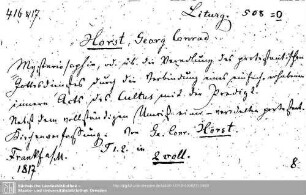 416 817.
Liturg. 508 =0
Horst, Georg Conrad
Mysteriosophie, od. üb. die Veredlung des protestantischen
Gottesdienstes durch die Verbindung eines einfach erhabenen
innern Acts des Cultus mit der Predigt.
Nebst dem vollständigen Umriß einer verbesserten protestant.
Kirchenverfassung. von Ge. Conr. Horst.
Frankf. a/M. T 1. 2. in 2 voll.
1817. 8.